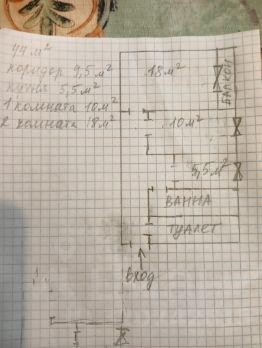 44 м²
коридор 9,5 м²
кухня 5,5 м²
1 комната 10 м²
2 комната 18 м²
18 м²
БАЛКОН
10 м²
5,5 м²
ВАННА
ТУАЛЕТ
ВХОД